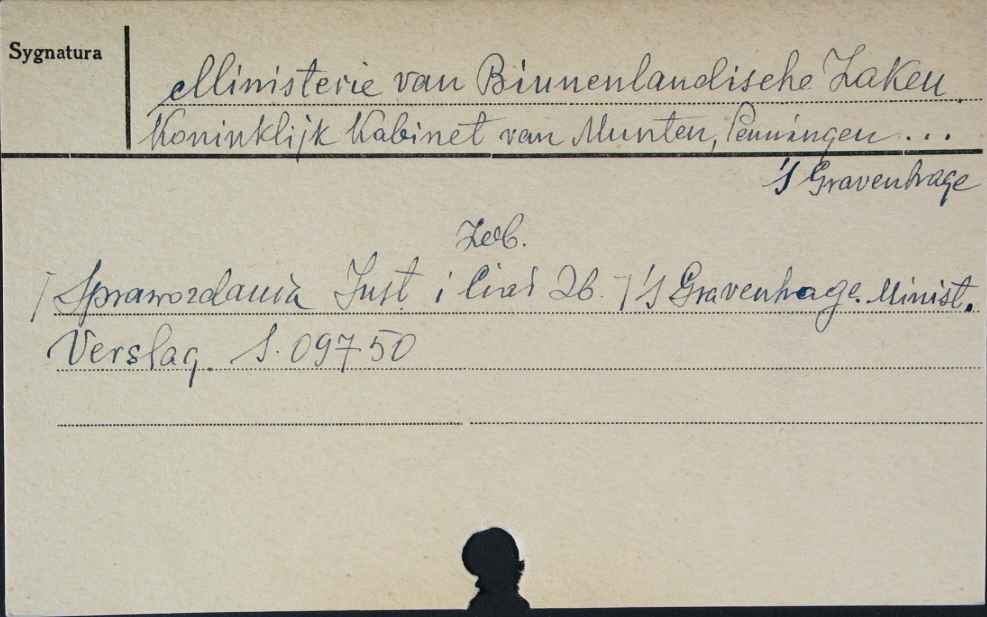 Sygnatura
Ministerie van Binnenlandische Zaken.
Koninklijk Kabinet van Munten, Penningen ...
's Gravenhage
Zob.
/ Sprawozdania Inst. i Ciał Zb. / 's Gravenhage. Minist.
Verslag. S. 09750